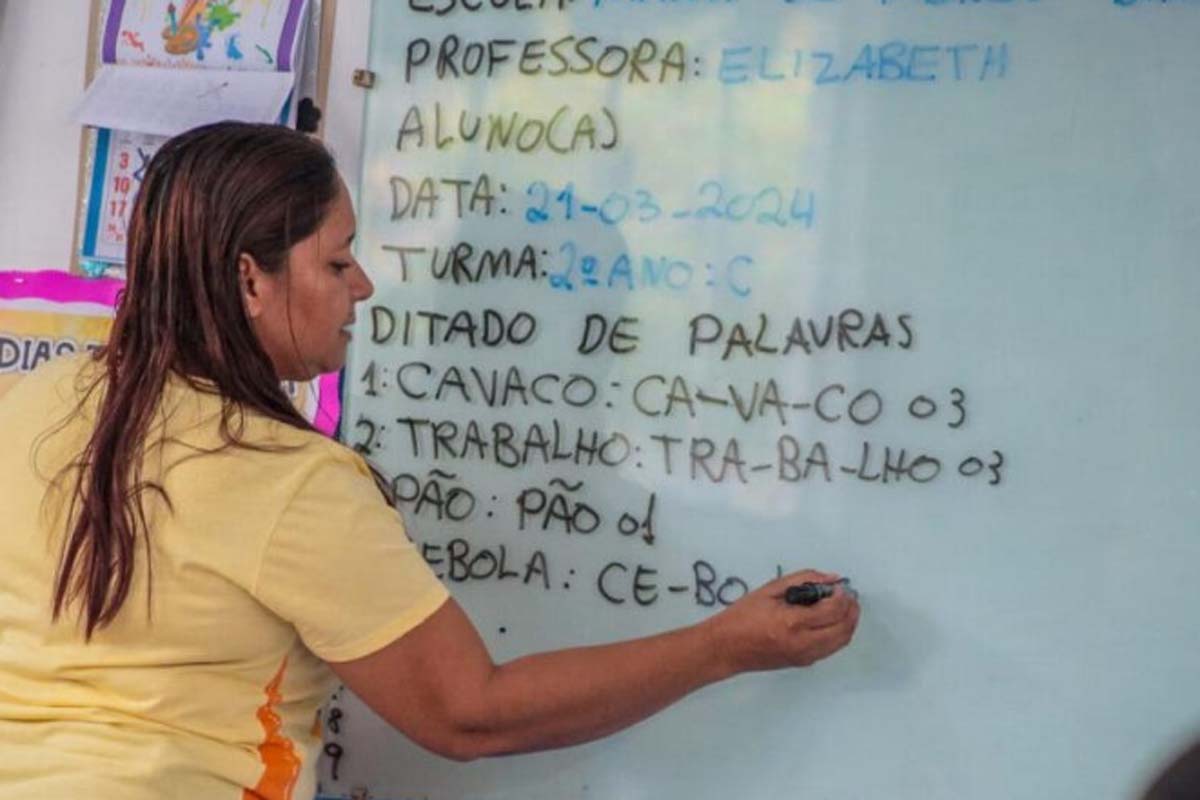 ESCOLA:
PROFESSORA: ELIZABETH
ALUNO(A)
DATA: 21-03-2024
TURMA: 2º ANO: C
DITADO DE PALAVRAS
1: CAVACO: CA-VA-CO 03
2: TRABALHO: TRA-BA-LHO 03
PÃO: PÃO 01
EBOLA: CE-BO
3
10
17
DIAS
8
9